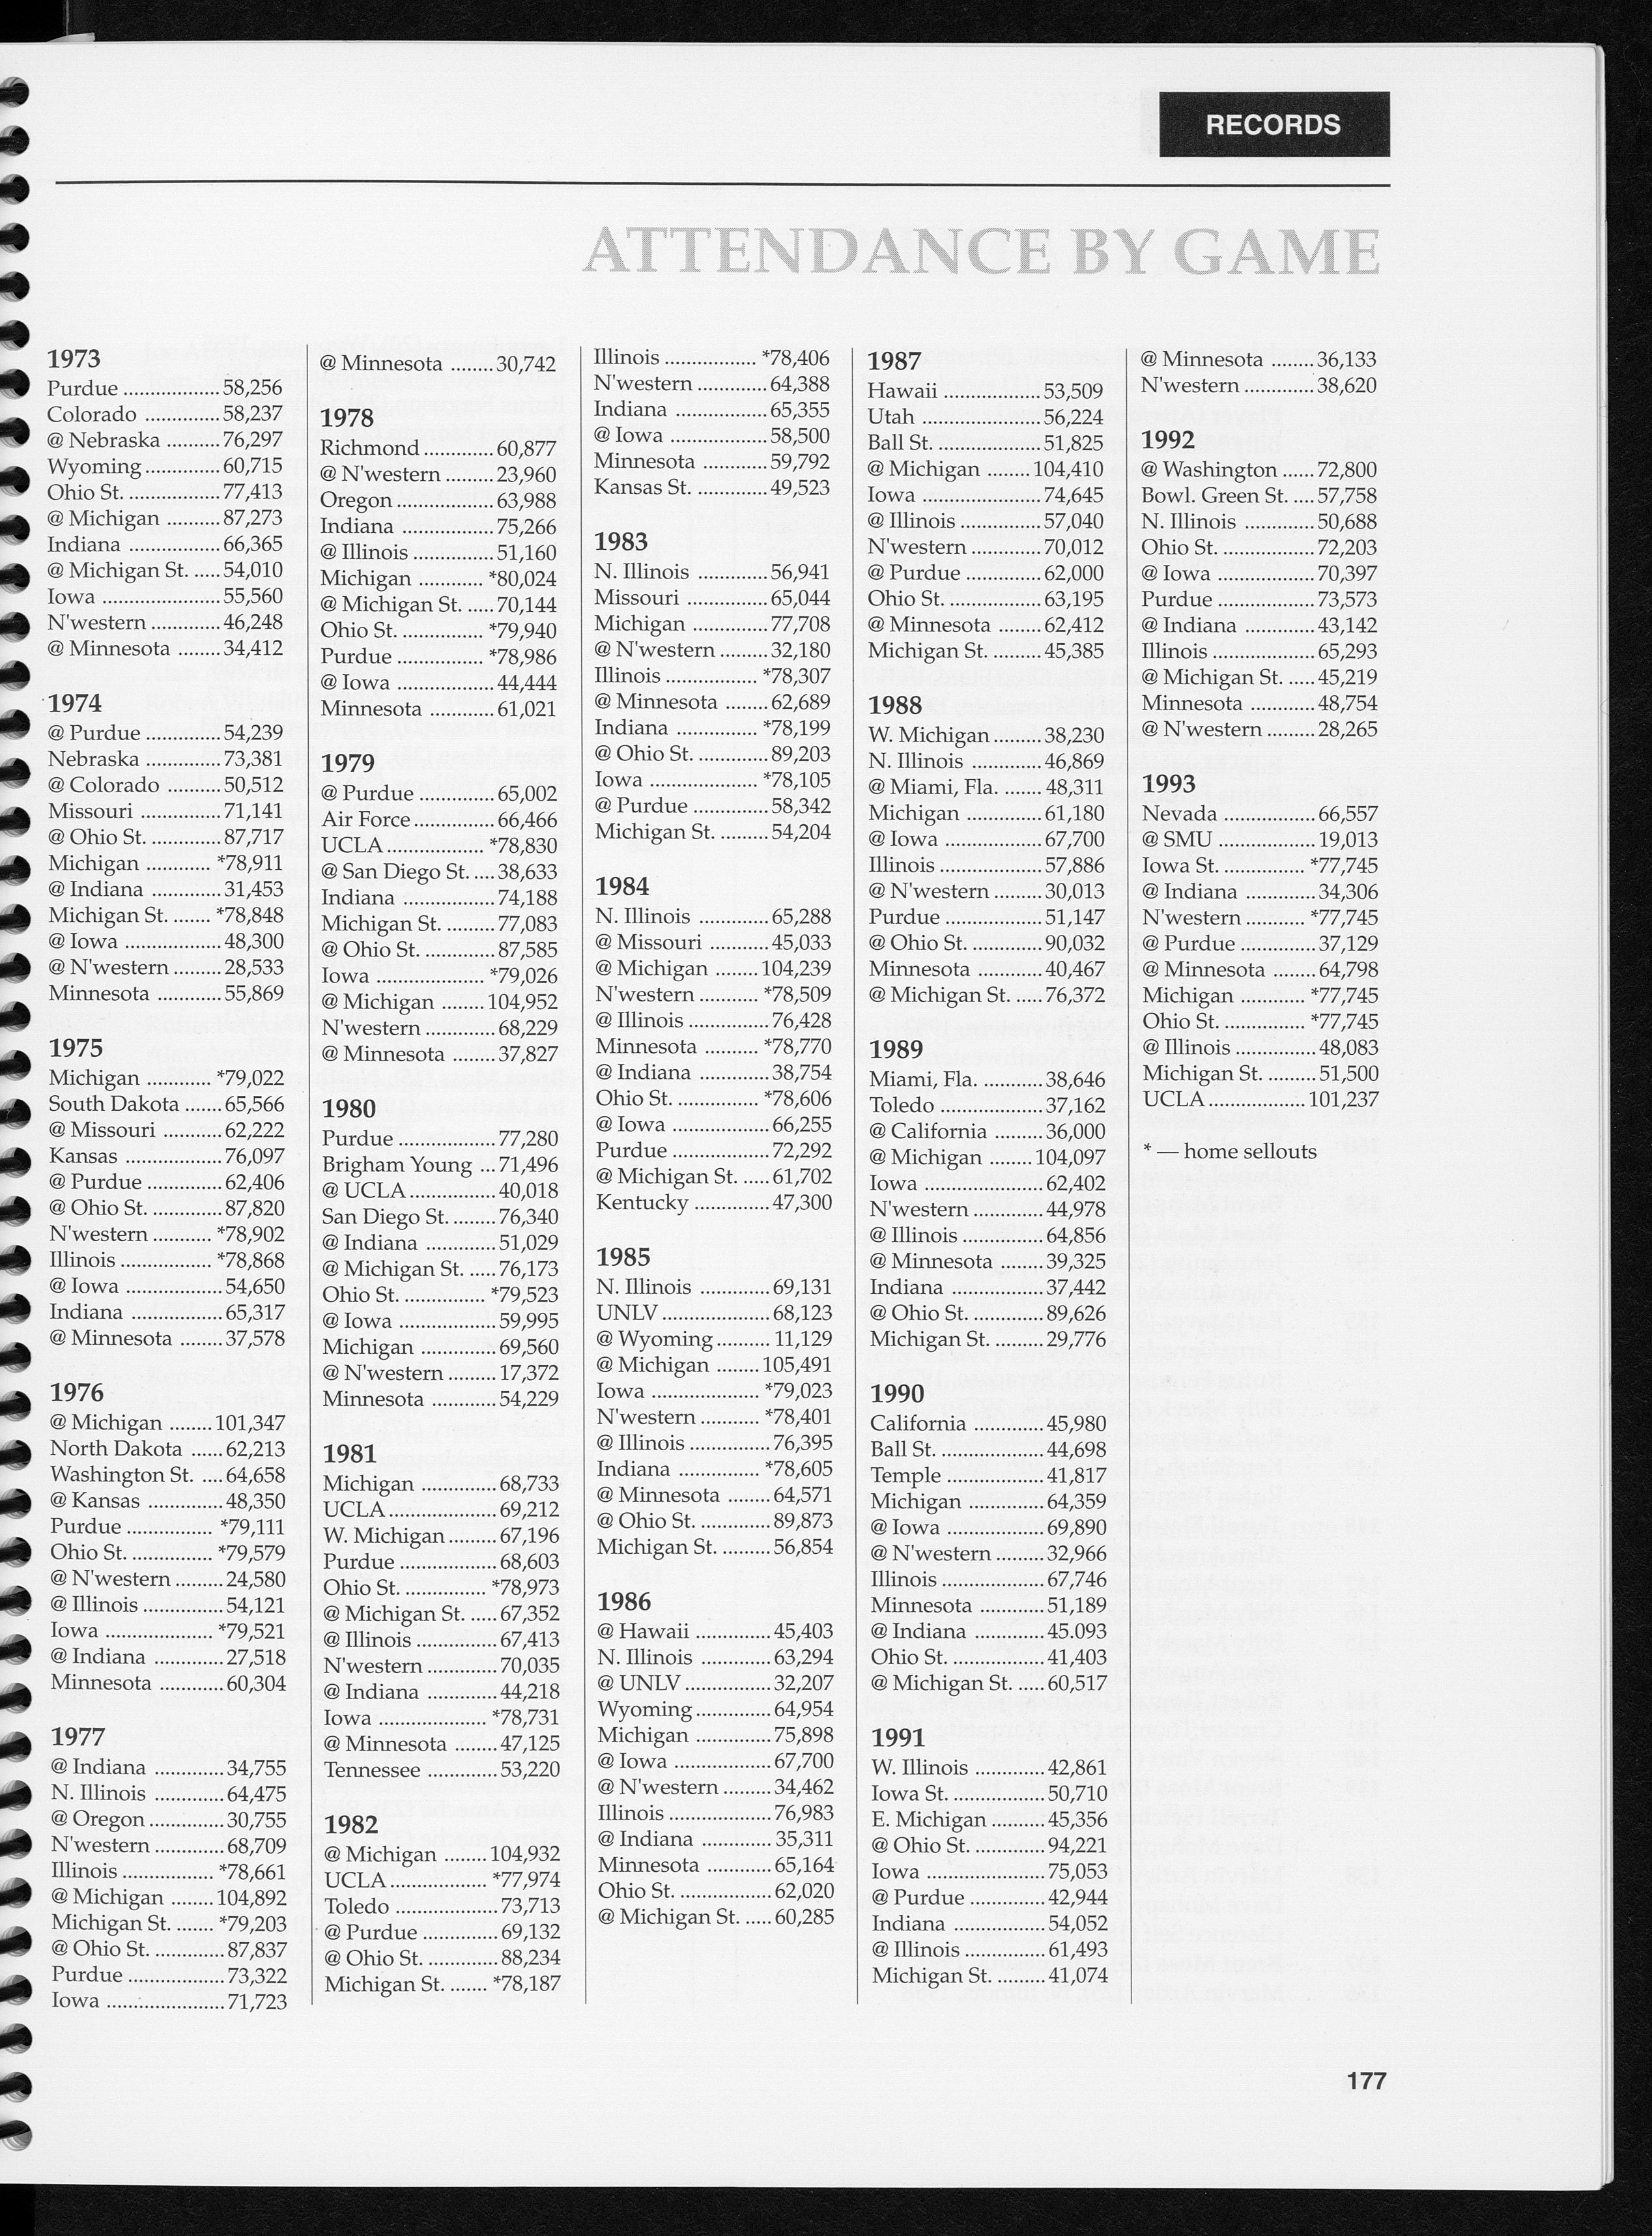 RECORDS
ATTENDANCE BY GAME
1973
Purdue ................. 58,256
Colorado ............. 58,237
@ Nebraska ......... 76,297
Wyoming ............. 60,715
Ohio St. ................ 77,413
@ Michigan ......... 87,273
Indiana ................ 66,365
@ Michigan St. ..... 54,010
Iowa ..................... 55,560
N'western ............ 46,248
@ Minnesota ........ 34,412
1974
@ Purdue ............. 54,239
Nebraska ............. 73,381
@ Colorado ......... 50,512
Missouri .............. 71,141
@ Ohio St. ............ 87,717
Michigan ........... *78,911
@ Indiana ............ 31,453
Michigan St. ....... *78,848
@ Iowa ................. 48,300
@ N'western ........ 28,533
Minnesota ........... 55,869
1975
Michigan ........... *79,022
South Dakota ....... 65,566
@ Missouri .......... 62,222
Kansas ................. 76,097
@ Purdue ............. 62,406
@ Ohio St. ............ 87,820
N'western .......... *78,902
Illinois ................ *78,868
@ Iowa ................. 54,650
Indiana ................ 65,317
@ Minnesota ........ 37,578
1976
@ Michigan ........ 101,347
North Dakota ...... 62,213
Washington St. .... 64,658
@ Kansas ............. 48,350
Purdue ............... *79,111
Ohio St. .............. *79,579
@ N'western ........ 24,580
@ Illinois .............. 54,121
Iowa ................... *79,521
@ Indiana ............ 27,518
Minnesota ........... 60,304
1977
@ Indiana ............ 34,755
N. Illinois ............ 64,475
@ Oregon ............. 30,755
N'western ............ 68,709
Illinois ................ *78,661
@ Michigan ....... 104,892
Michigan St. ....... *79,203
@ Ohio St. ............ 87,837
Purdue ................. 73,322
Iowa ..................... 71,723
@ Minnesota ........ 30,742
1978
Richmond ............ 60,877
@ N'western ......... 23,960
Oregon ................. 63,988
Indiana ................ 75,266
@ Illinois .............. 51,160
Michigan ........... *80,024
@ Michigan St. ..... 70,144
Ohio St. .............. *79,940
Purdue ............... *78,986
@ Iowa ................. 44,444
Minnesota ........... 61,021
1979
@ Purdue ............. 65,002
Air Force .............. 66,466
UCLA ................. *78,830
@ San Diego St. .... 38,633
Indiana ................ 74,188
Michigan St. ......... 77,083
@ Ohio St. ............ 87,585
Iowa ................... *79,026
@ Michigan ....... 104,952
N'western ............ 68,229
@ Minnesota ........ 37,827
1980
Purdue ................. 77,280
Brigham Young ... 71,496
@ UCLA ............... 40,018
San Diego St. ........ 76,340
@ Indiana ............ 51,029
@ Michigan St. ..... 76,173
Ohio St. .............. *79,523
@ Iowa ................. 59,995
Michigan ............. 69,560
@ N'western ......... 17,372
Minnesota ........... 54,229
1981
Michigan ............. 68,733
UCLA ................... 69,212
W. Michigan ......... 67,196
Purdue ................. 68,603
Ohio St. .............. *78,973
@ Michigan St. ..... 67,352
@ Illinois .............. 67,413
N'western ............ 70,035
@ Indiana ............ 44,218
Iowa ................... *78,731
@ Minnesota ........ 47,125
Tennessee ............ 53,220
1982
@ Michigan ........ 104,932
UCLA ................. *77,974
Toledo .................. 73,713
@ Purdue ............. 69,132
@ Ohio St. ............ 88,234
Michigan St. ....... *78,187
Illinois ................ *78,406
N'western ............ 64,388
Indiana ................ 65,355
@ Iowa ................. 58,500
Minnesota ........... 59,792
Kansas St. ............ 49,523
1983
N. Illinois ............ 56,941
Missouri .............. 65,044
Michigan ............. 77,708
@ N'western ......... 32,180
Illinois ................ *78,307
@ Minnesota ........ 62,689
Indiana .............. *78,199
@ Ohio St. ............ 89,203
Iowa ................... *78,105
@ Purdue ............. 58,342
Michigan St. ......... 54,204
1984
N. Illinois ............ 65,288
@ Missouri .......... 45,033
@ Michigan ........ 104,239
N'western .......... *78,509
@ Illinois .............. 76,428
Minnesota ......... *78,770
@ Indiana ............ 38,754
Ohio St. .............. *78,606
@ Iowa ................. 66,255
Purdue ................. 72,292
@ Michigan St. ..... 61,702
Kentucky ............. 47,300
1985
N. Illinois ............ 69,131
UNLV ................... 68,123
@ Wyoming .......... 11,129
@ Michigan ........ 105,491
Iowa ................... *79,023
N'western .......... *78,401
@ Illinois .............. 76,395
Indiana .............. *78,605
@ Minnesota ........ 64,571
@ Ohio St. ............ 89,873
Michigan St. ......... 56,854
1986
@ Hawaii .............. 45,403
N. Illinois ............ 63,294
@ UNLV ............... 32,207
Wyoming ............. 64,954
Michigan ............. 75,898
@ Iowa ................. 67,700
@ N'western ......... 34,462
Illinois .................. 76,983
@ Indiana ............ 35,311
Minnesota ........... 65,164
Ohio St. ................ 62,020
@ Michigan St. ..... 60,285
1987
Hawaii ................. 53,509
Utah ..................... 56,224
Ball St. .................. 51,825
@ Michigan ....... 104,410
Iowa ..................... 74,645
@ Illinois .............. 57,040
N'western ............ 70,012
@ Purdue ............. 62,000
Ohio St. ................ 63,195
@ Minnesota ........ 62,412
Michigan St. ......... 45,385
1988
W. Michigan ......... 38,230
N. Illinois ............ 46,869
@ Miami, Fla. ....... 48,311
Michigan ............. 61,180
@ Iowa ................. 67,700
Illinois .................. 57,886
@ N'western ......... 30,013
Purdue ................. 51,147
@ Ohio St. ............ 90,032
Minnesota ........... 40,467
@ Michigan St. ..... 76,372
1989
Miami, Fla. .......... 38,646
Toledo .................. 37,162
@ California ......... 36,000
@ Michigan ........ 104,097
Iowa ..................... 62,402
N'western ............ 44,978
@ Illinois .............. 64,856
@ Minnesota ........ 39,325
Indiana ................ 37,442
@ Ohio St. ............ 89,626
Michigan St. ......... 29,776
1990
California ............ 45,980
Ball St. .................. 44,698
Temple ................. 41,817
Michigan ............. 64,359
@ Iowa ................. 69,890
@ N'western ......... 32,966
Illinois .................. 67,746
Minnesota ........... 51,189
@ Indiana ............ 45.093
Ohio St. ................ 41,403
@ Michigan St. ..... 60,517
1991
W. Illinois ............ 42,861
Iowa St. ................ 50,710
E. Michigan .......... 45,356
@ Ohio St. ............ 94,221
Iowa ..................... 75,053
@ Purdue ............. 42,944
Indiana ................ 54,052
@ Illinois .............. 61,493
Michigan St. ......... 41,074
@ Minnesota ........ 36,133
N'western ............ 38,620
1992
@ Washington ...... 72,800
Bowl. Green St. .... 57,758
N. Illinois ............ 50,688
Ohio St. ................ 72,203
@ Iowa ................. 70,397
Purdue ................. 73,573
@ Indiana ............ 43,142
Illinois .................. 65,293
@ Michigan St. ..... 45,219
Minnesota ........... 48,754
@ N'western ......... 28,265
1993
Nevada ................ 66,557
@ SMU ................. 19,013
Iowa St. .............. *77,745
@ Indiana ............ 34,306
N'western .......... *77,745
@ Purdue ............. 37,129
@ Minnesota ........ 64,798
Michigan ........... *77,745
Ohio St. .............. *77,745
@ Illinois .............. 48,083
Michigan St. ......... 51,500
UCLA ................. 101,237
* — home sellouts
177